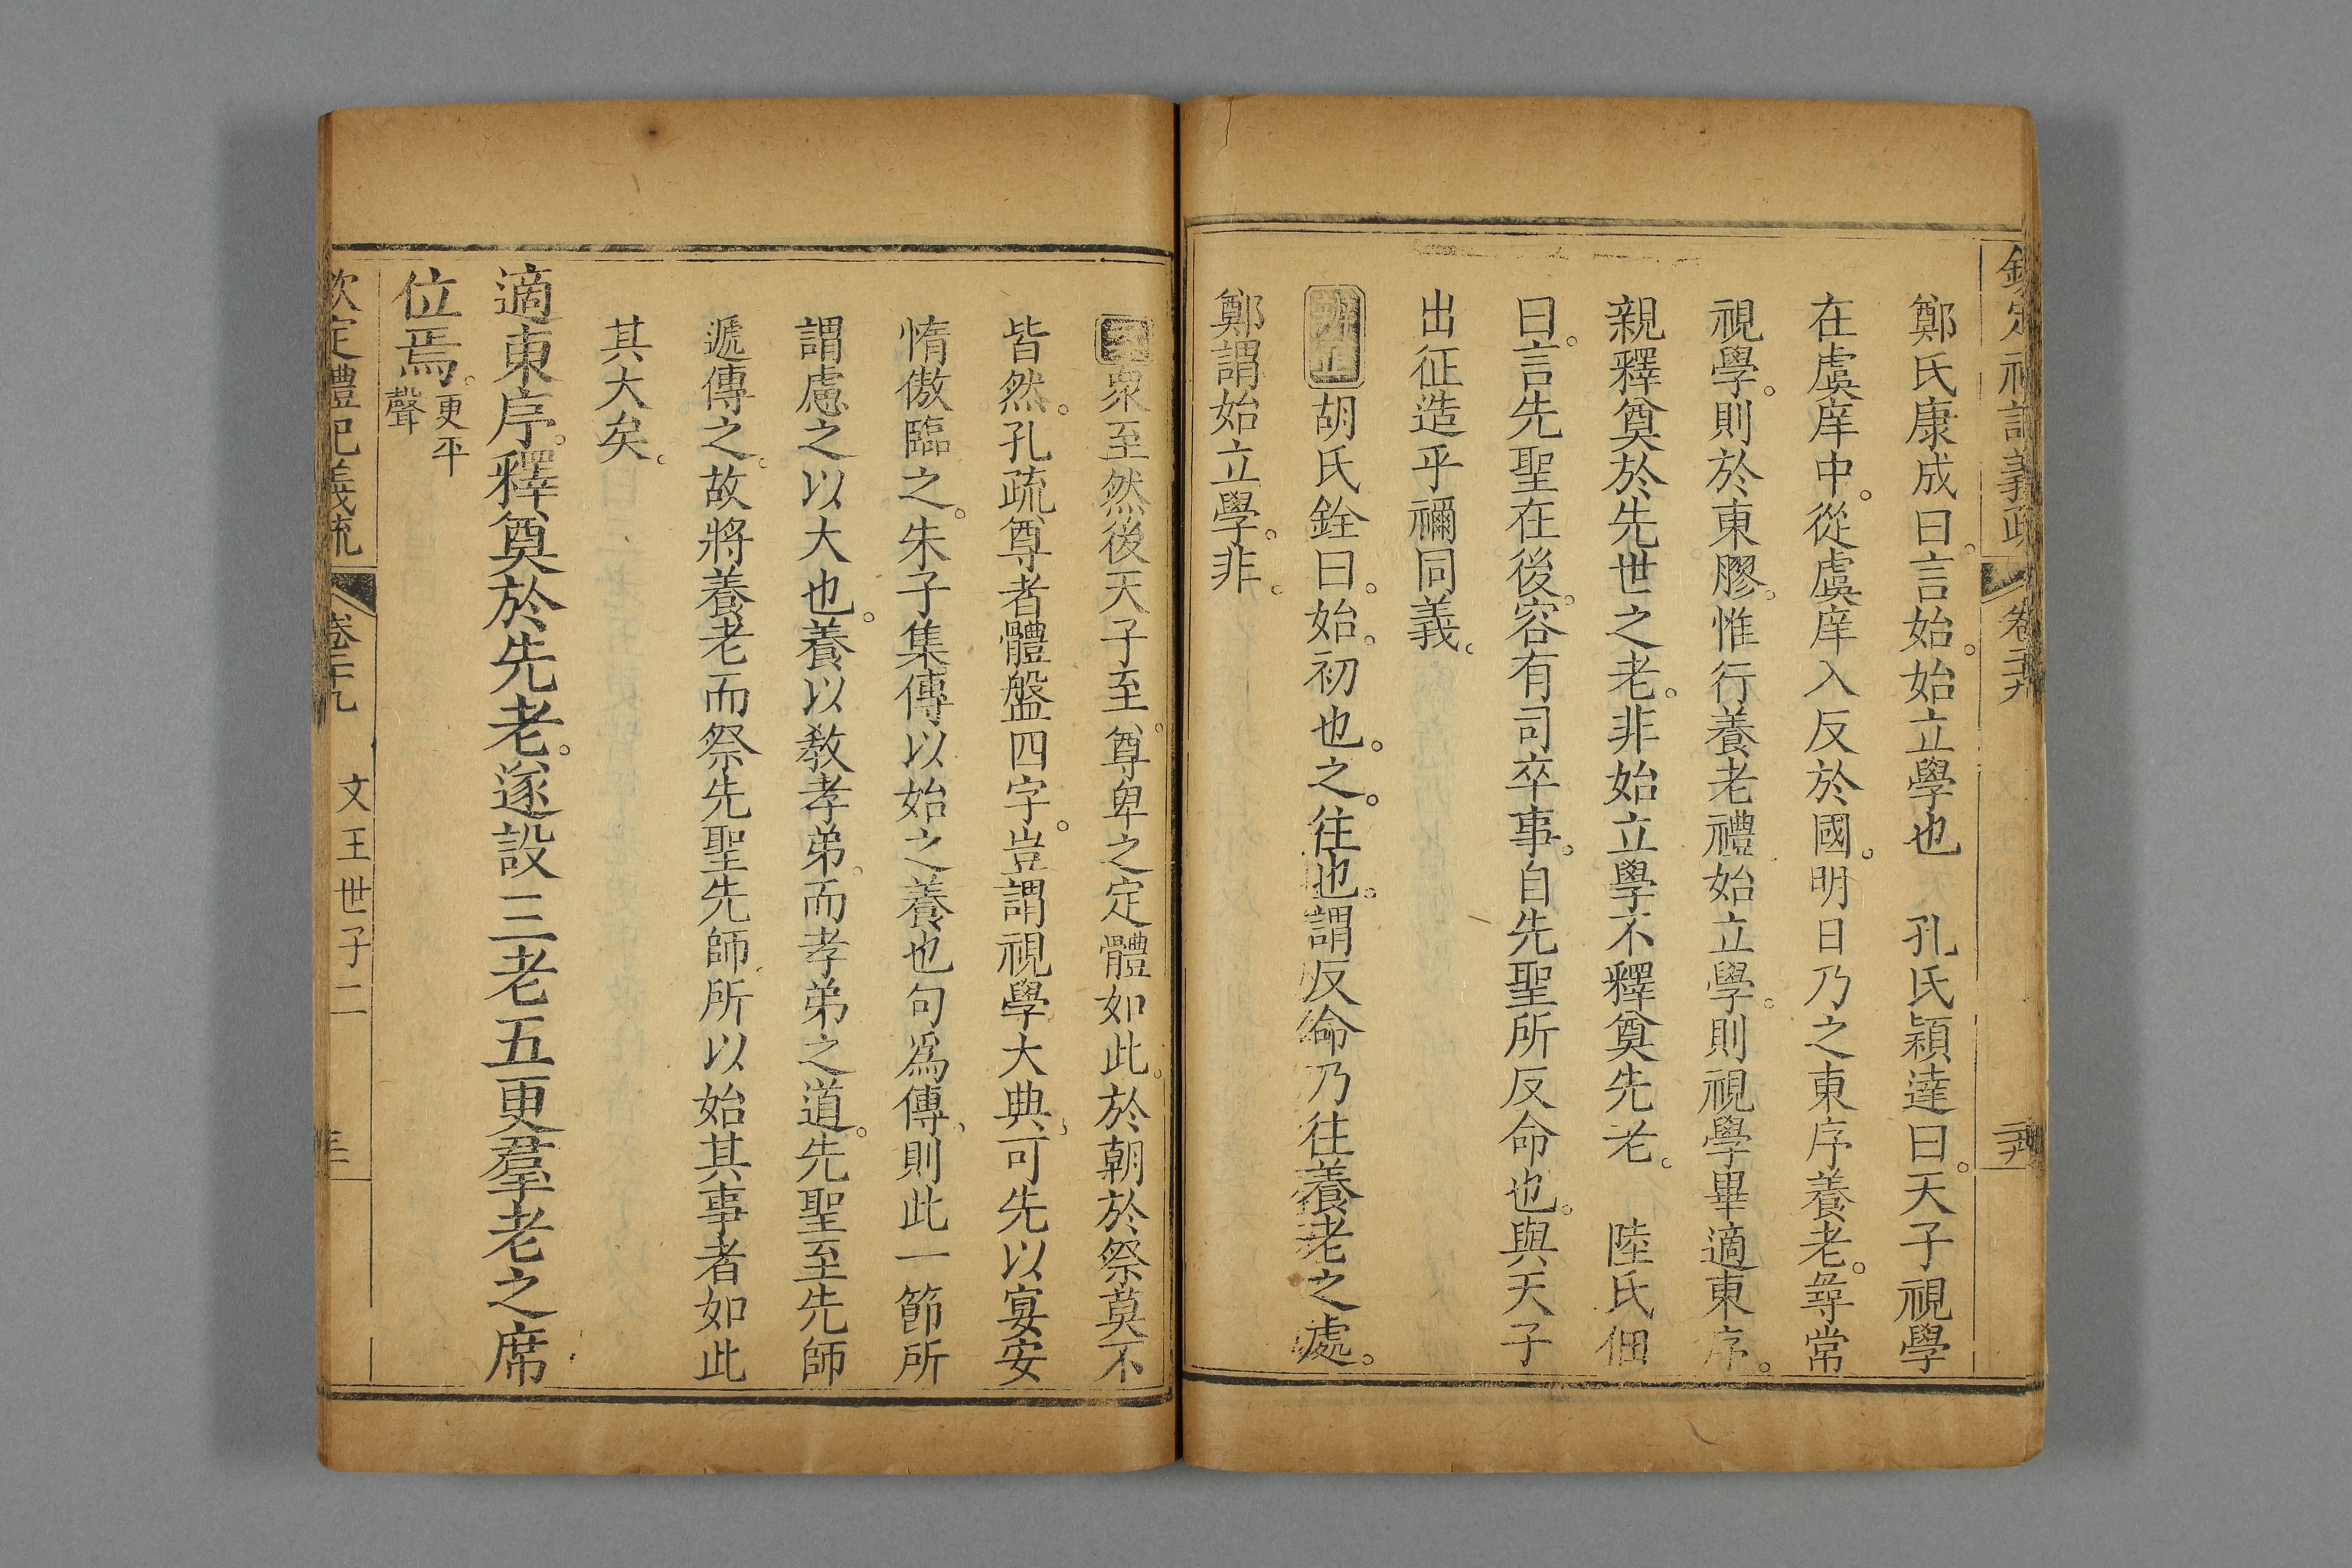 欽定禮記義疏 卷二十九
鄭氏康成曰。言始。始立學也　孔氏穎達曰。天子視學
在虞庠中。從虞庠入反於國。明日乃之東序養老。尋常
視學。則於東膠。惟行養老禮。始立學。則視學畢適東序。
親釋奠於先世之老。非始立學不釋奠先老。　陸氏佃
曰。言先聖在後。容有司卒事。自先聖所反命也。與天子
出征造乎禰同義。
辨正胡氏銓曰。始。初也。之。往也。謂反命乃往養老之處。
鄭謂始立學。非。
案眾至然後天子至。尊卑之定體如此。於朝於祭莫不
皆然。孔疏尊者體盤四字。豈謂視學大典。可先以宴安
惰傲臨之。朱子集傳以始之養也句為傳、則此一節所
謂慮之以大也。養以敎孝弟。而孝弟之道。先聖至先師
遞傳之。故將養老而祭先聖先師。所以始其事者如此
其大矣。
適東序。釋奠於先老。遂設三老五更羣老之席
位焉。更平聲
欽定禮記義疏 卷二十九 文王世子二